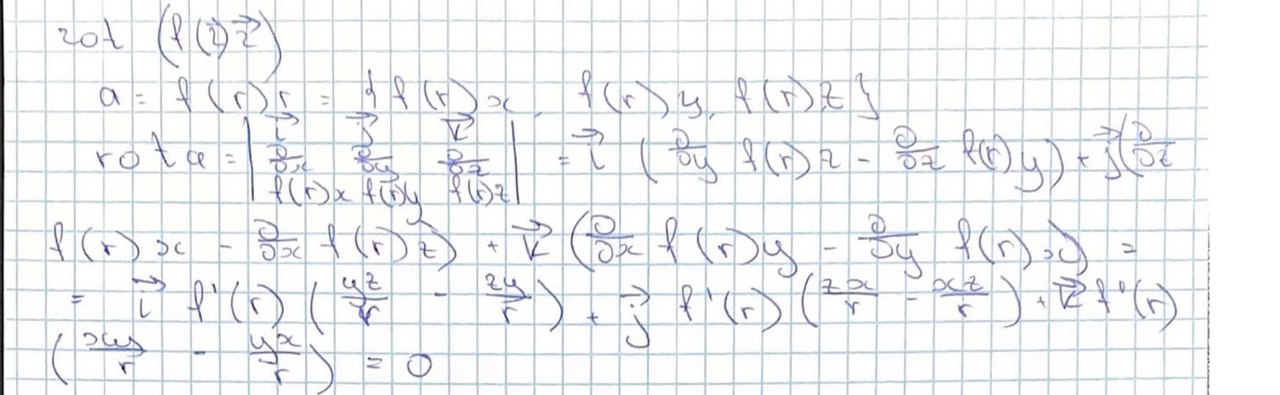 rot (f(r) r⃗)
a = f(r) r = { f(r)x, f(r)y, f(r)z }
rot a = | i⃗ j⃗ k⃗ ; ∂/∂x ∂/∂y ∂/∂z ; f(r)x f(r)y f(r)z | = i⃗ (∂/∂y f(r)z − ∂/∂z f(r)y) + j⃗ (∂/∂z
f(r)x − ∂/∂x f(r)z) + k⃗ (∂/∂x f(r)y − ∂/∂y f(r)x) =
= i⃗ f'(r) (yz/r − zy/r) + j⃗ f'(r) (zx/r − xz/r) + k⃗ f'(r)
(xy/r − yx/r) = 0